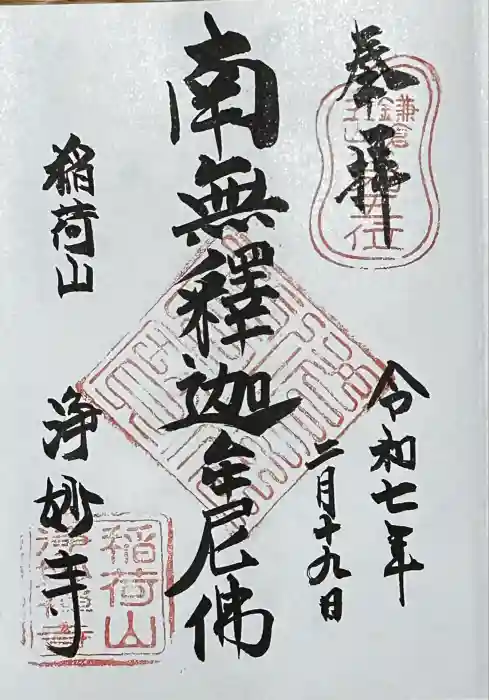 奉拝
鎌倉
五山
第五位
令和七年
二月十九日
南無釋迦牟尼佛
稲荷山
浄妙寺
稲荷山
浄妙禅寺